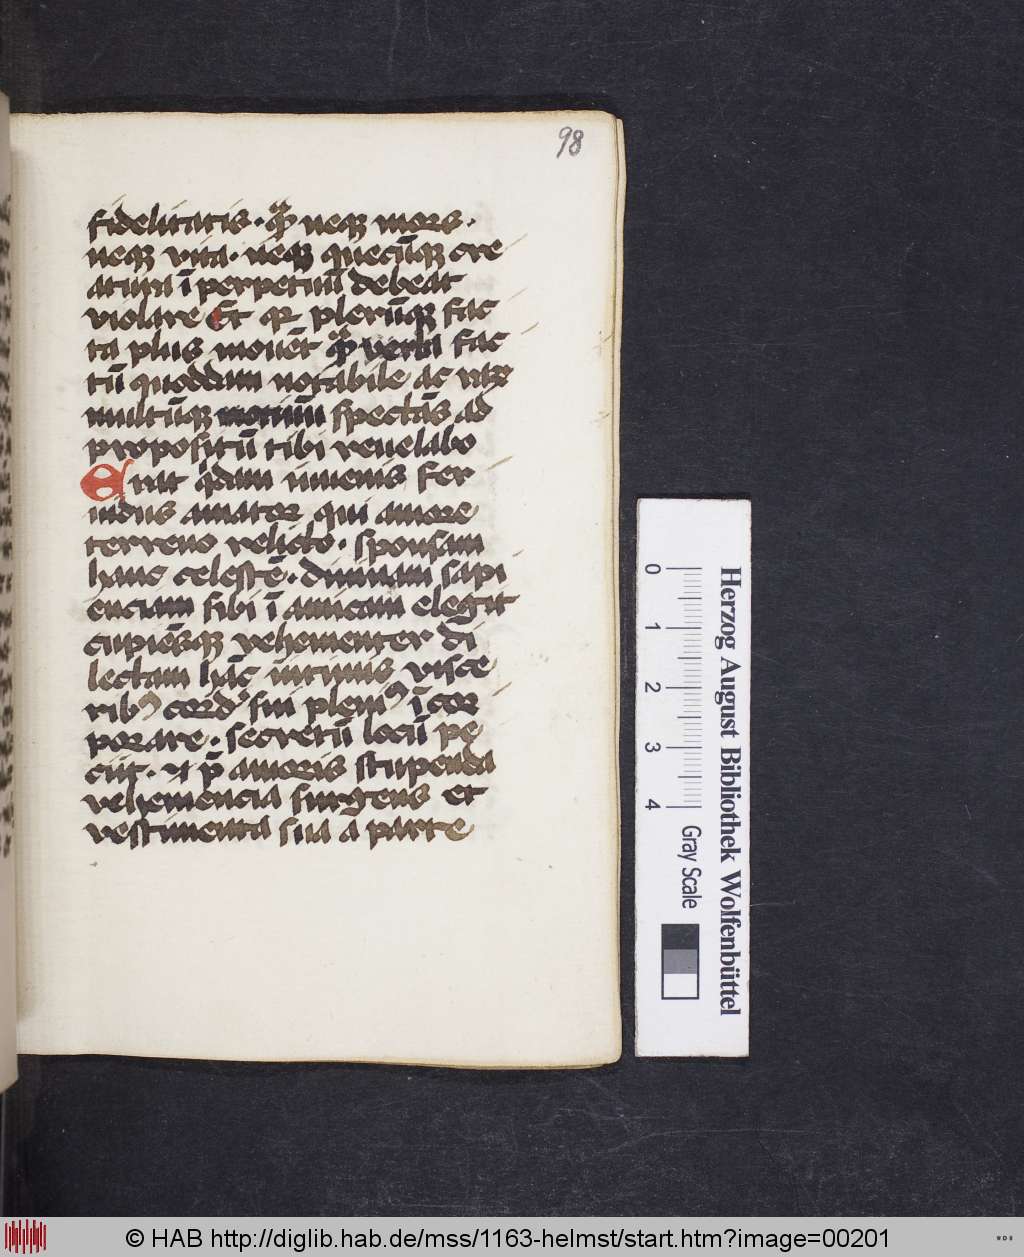 98
fidelitatis · quā neqꝫ mors ·
neqꝫ vita · neqꝫ quecūqꝫ cre
atura ī perpetuū debeat
violare Et qꝛ plerūqꝫ fac
ta plus mouēt quā verba fac
tū quoddam notabile ac
multūqꝫ spectās ad
propositū tibi reuelabo
Erat qͥdam iuuenis fer
uidus amator qui amore
terreno relicto · sponsam
hanc celestē · diuinam sapi
enciam sibi ī amicam elegit
cupiēsqꝫ vehementer di
lectam hāc intimis visce
ribꝰ cord sui pleniꝰ īcor
porare · secretū locū pe
ciit · ⁊ p̄ amoris stupenda
vehemencia surgens et
vestimenta sua a parte
Herzog August Bibliothek Wolfenbüttel
0 1 2 3 4 Gray Scale
© HAB http://diglib.hab.de/mss/1163-helmst/start.htm?image=00201